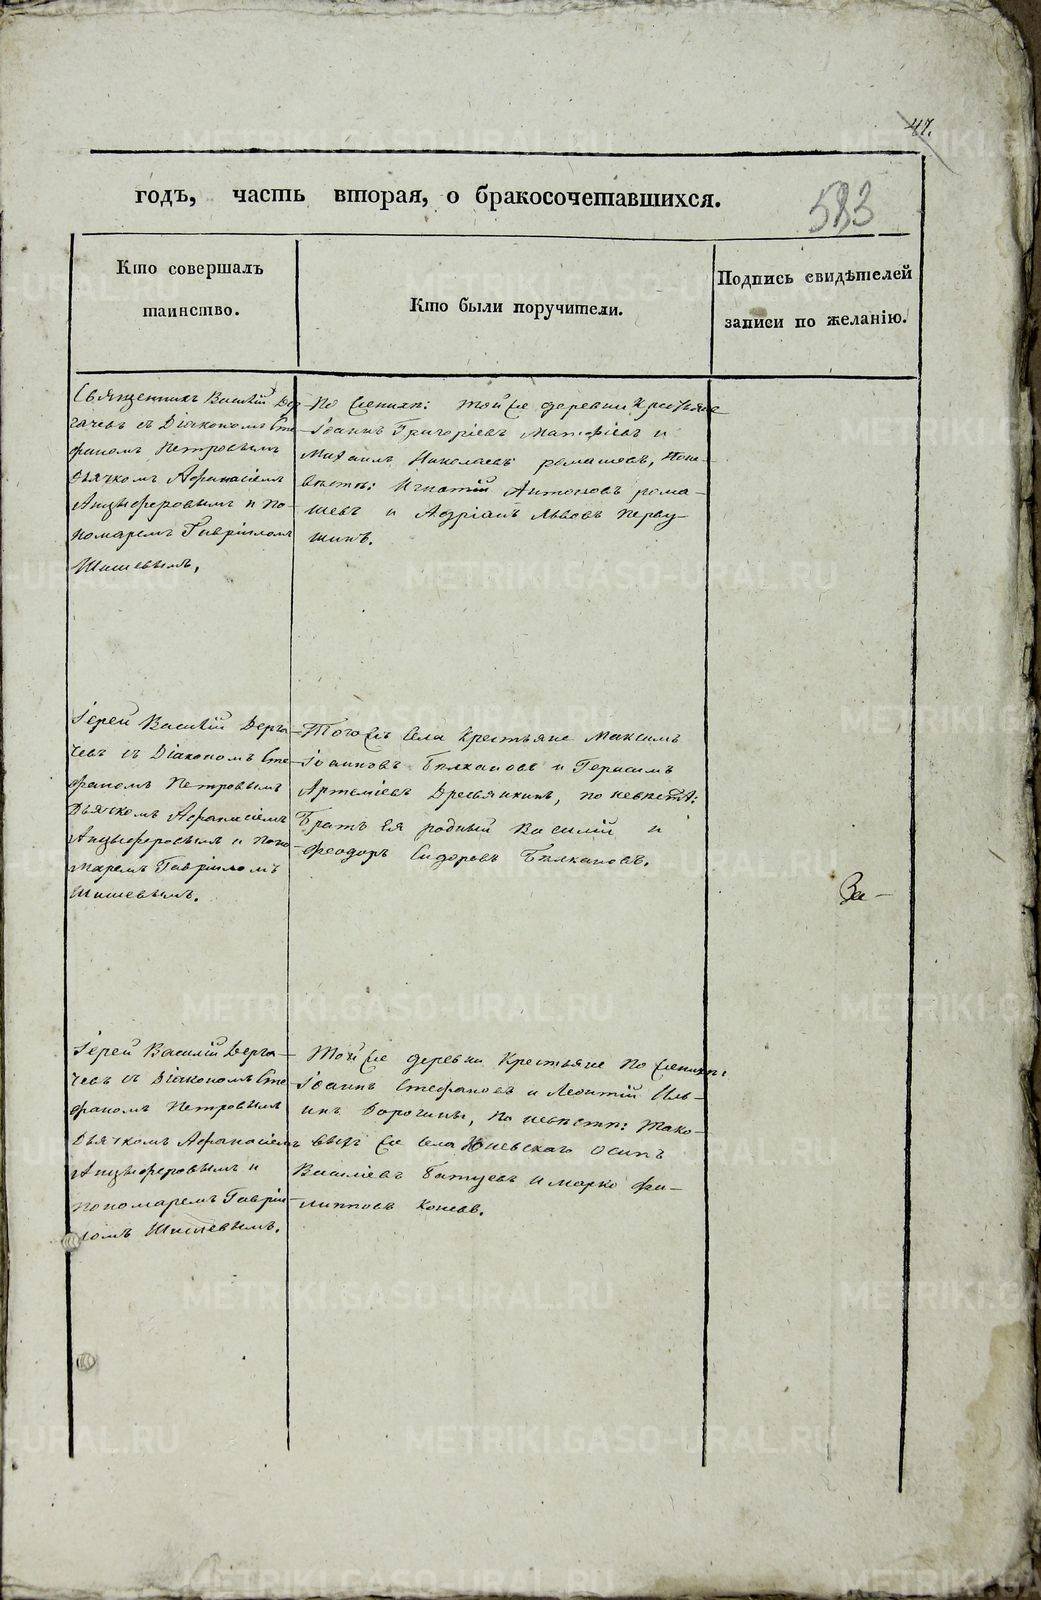 47.
годъ, часть вторая, о бракосочетавшихся.
583
Кто совершалъ
таинство.
Кто были поручители.
Подпись свидѣтелей
записи по желанію.
Священникъ Василій Дер
гачевъ съ Діакономъ Сте
фаномъ Петровымъ
Дьячкомъ Афанасіемъ
Анцыферовымъ и по-
номаремъ Гавріиломъ
Шишевымъ,
По женихѣ: той же деревни крестьяне
Іоаннъ Григоріевъ Матфіевъ и
Михаилъ Николаевъ ромашовъ, поне-
вѣстѣ: Игнатій Антоновъ рома-
шевъ и Адріанъ Львовъ Перву-
шинъ.
Іерей Василій Дерга-
чевъ съ Діакономъ Сте-
фаномъ Петровымъ
Дьячкомъ Афанасіемъ
Анцыферовымъ и поно-
маремъ Гавріиломъ
Шишевымъ.
Того же села крестьяне Максимъ
Іоанновъ Бѣлкановъ и Герасимъ
Артеміевъ Дресвянкинъ, по невѣстѣ:
Братъ Ея родный Василій и
Феодоръ Сидоровъ Бѣлкановъ.
За-
Іерей Василій Дерга-
чевъ съ Діакономъ Сте-
фаномъ Петровымъ
Дьячкомъ Афанасіемъ
Анцыферовымъ и
пономаремъ Гаврі-
ломъ Шишевымъ.
Той же деревни крестьяне по женихѣ:
Іоаннъ Стефановъ и Леонтій Иль-
инъ Дорогины, по невѣстѣ: тако-
выхъ же села Осипъ
Василіевъ Батуевъ и Марко Фи-
липповъ Коневъ.
METRIKI.GASO-URAL.RU